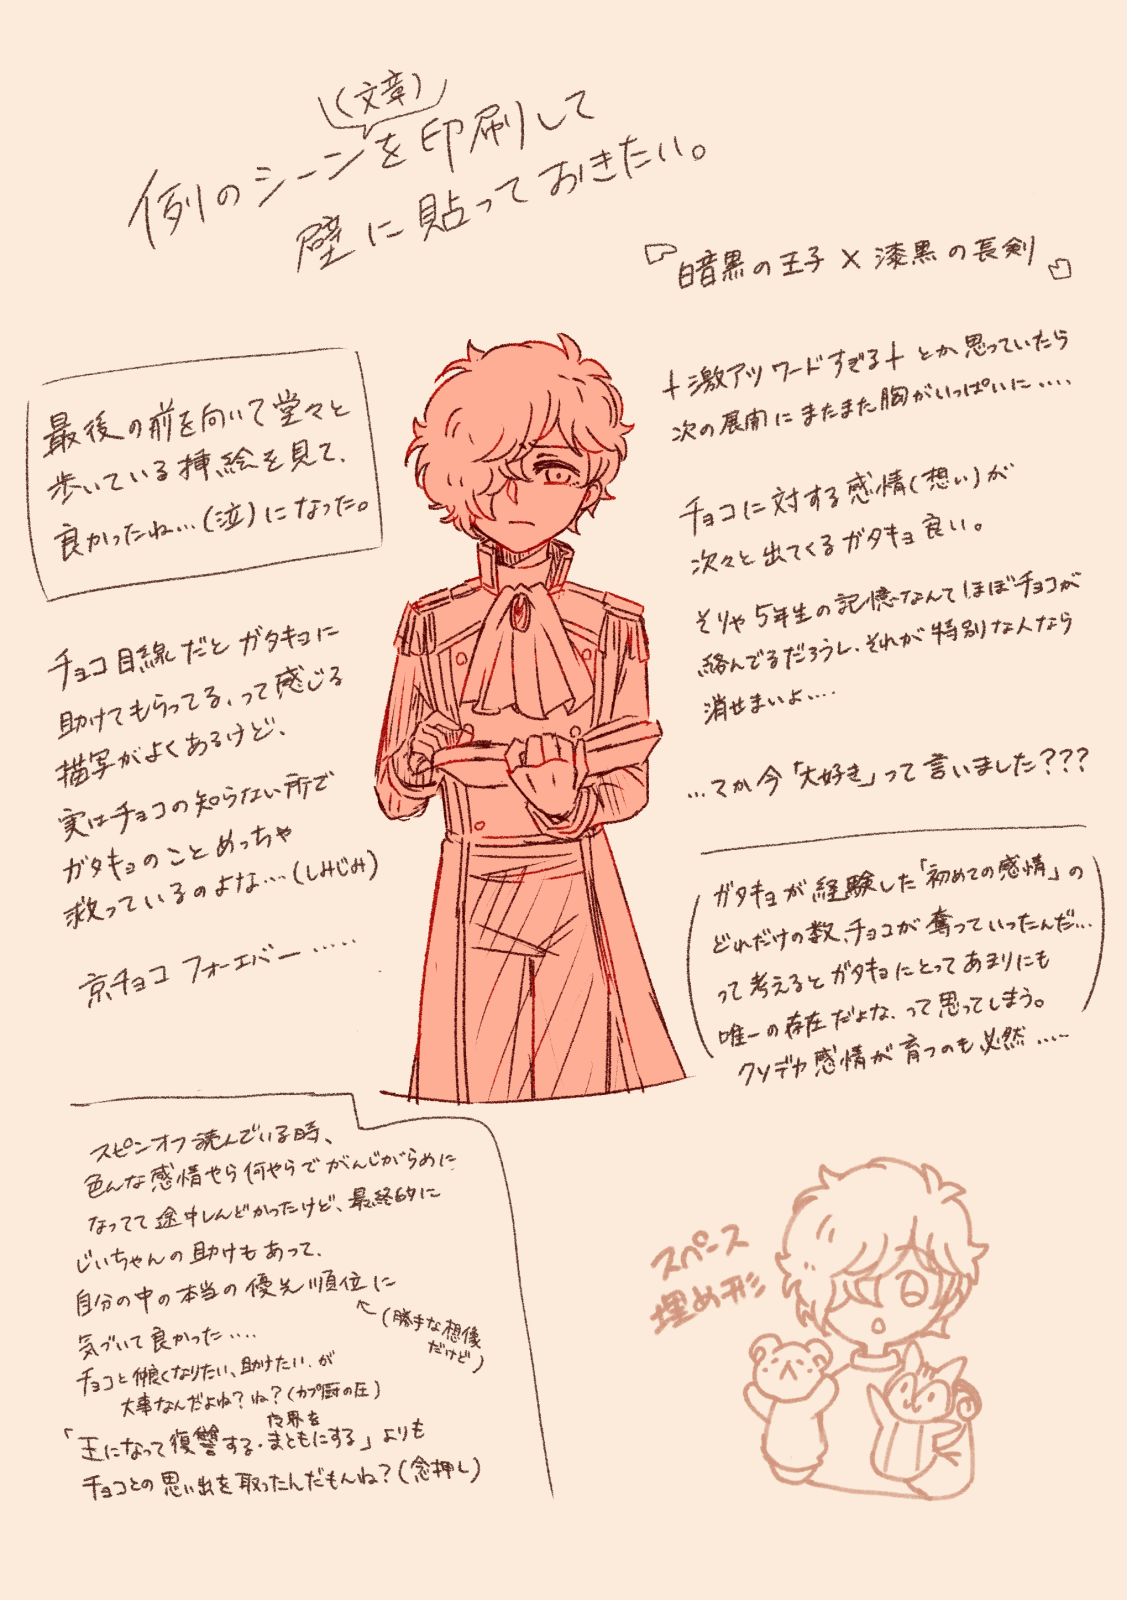 (文章)
例のシーンを印刷して
壁に貼っておきたい。
『暗黒の王子×漆黒の長剣』
†激アツワードすぎる†とか思っていたら
次の展開にまたまた胸がいっぱいに....
チョコに対する感情(想い)が
次々と出てくるガタキョ良い。
そりゃ5年生の記憶なんてほぼチョコが
絡んでるだろうし、それが特別な人なら
消せまいよ....
...てか今「大好き」って言いました???
ガタキョが経験した「初めての感情」の
どれだけの数、チョコが奪っていったんだ...
って考えるとガタキョにとってあまりにも
唯一の存在だよな、って思ってしまう。
クソデカ感情が育つのも必然.....
最後の前を向いて堂々と
歩いている挿絵を見て、
良かったね...(泣)になった。
チョコ目線だとガタキョに
助けてもらってる、って感じる
描写がよくあるけど、
実はチョコの知らない所で
ガタキョのことめっちゃ
救っているのよな....(しみじみ)
京チョコフォーエバー.....
スピンオフ読んでいる時、
色んな感情やら何やらでがんじがらめに
なってて途中しんどかったけど、最終的に
じいちゃんの助けもあって、
自分の中の本当の優先順位に
←(勝手な想像
だけど)
気づいて良かった....
チョコと仲良くなりたい、助けたい、が
大事なんだよね?ね?(カプ厨の圧)
夜界を
「王になって復讐する・まともにする」よりも
チョコとの思い出を取ったんだもんね?(念押し)
スペース
埋め形